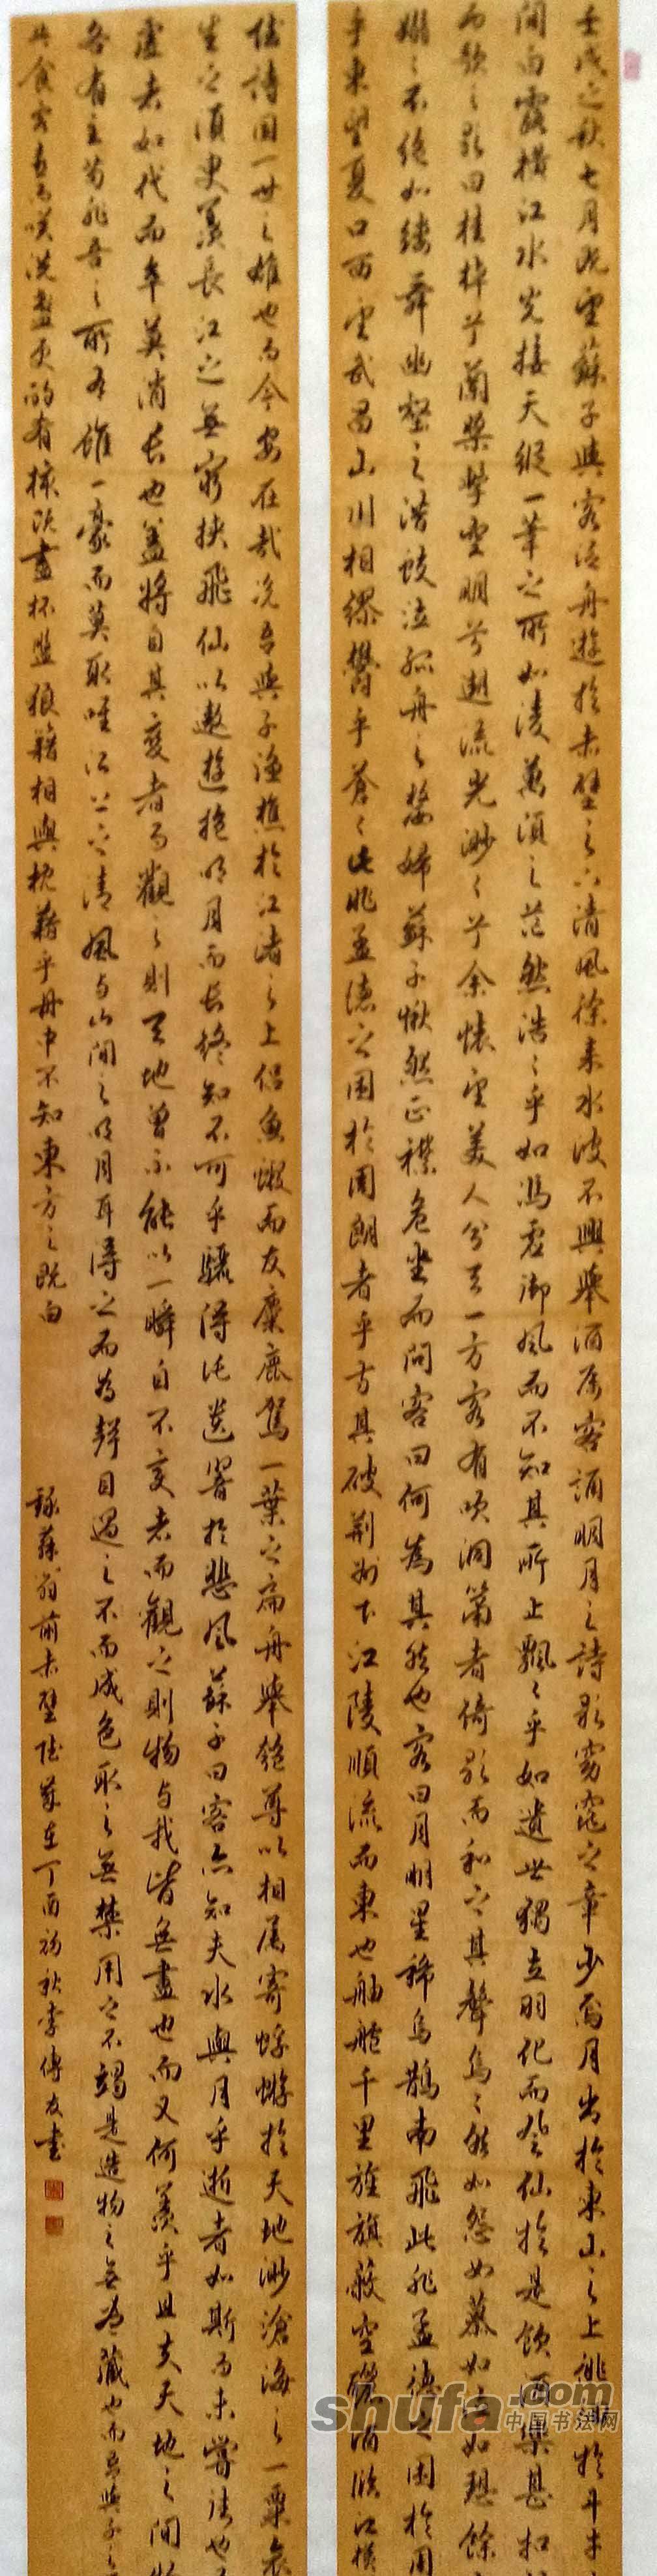 壬戌之秋七月既望蘇子與客泛舟遊於赤壁之下清風徐来水波不興舉酒属客誦明月之詩歌窈窕之章少焉月出於東山之上徘徊於斗牛
間白露橫江水光接天縱一葦之所如淩萬頃之茫然浩々乎如馮虚御風而不知其所止飄々乎如遺世獨立羽化而登仙於是飲酒樂甚扣
而歌之歌曰桂棹兮蘭槳擊空明兮遡流光渺々兮余懷望美人兮天一方客有吹洞簫者倚歌而和之其聲烏々然如怨如慕如泣如訴餘
嫋々不絕如縷舞幽壑之潜蛟泣孤舟之嫠婦蘇子愀然正襟危坐而問客曰何為其然也客曰月明星稀烏鵲南飛此非孟德之困於周
乎東望夏口西望武昌山川相繆鬱乎蒼々此非孟德之困於周郎者乎方其破荆州下江陵順流而東也舳艫千里旌旗蔽空釃酒臨江橫
賦詩固一世之雄也而今安在哉况吾與子漁樵於江渚之上侣魚蝦而友麋鹿駕一葉之扁舟舉匏尊以相属寄蜉蝣於天地渺滄海之一粟哀
生之須臾羨長江之無窮挾飛仙以遨遊抱明月而長終知不可乎驟得託遺響於悲風蘇子曰客亦知夫水與月乎逝者如斯而未嘗往也
虚者如代而卒莫消長也盖將自其变者而觀之則天地曾不能以一瞬自不变者而觀之則物与我皆無盡也而又何羨乎且夫天地之間物
各有主苟非吾之所有雖一豪而莫取唯江上之清風与山間之明月耳得之而為聲目遇之不而成色取之無禁用之不竭是造物之無盡藏也而吾與子之
共食客喜而笑洗盞更酌肴核既盡杯盤狼籍相與枕藉乎舟中不知東方之既白
録蘇翁前赤壁賦歲在丁酉初秋李傅友書
shufa.com
中国书法网